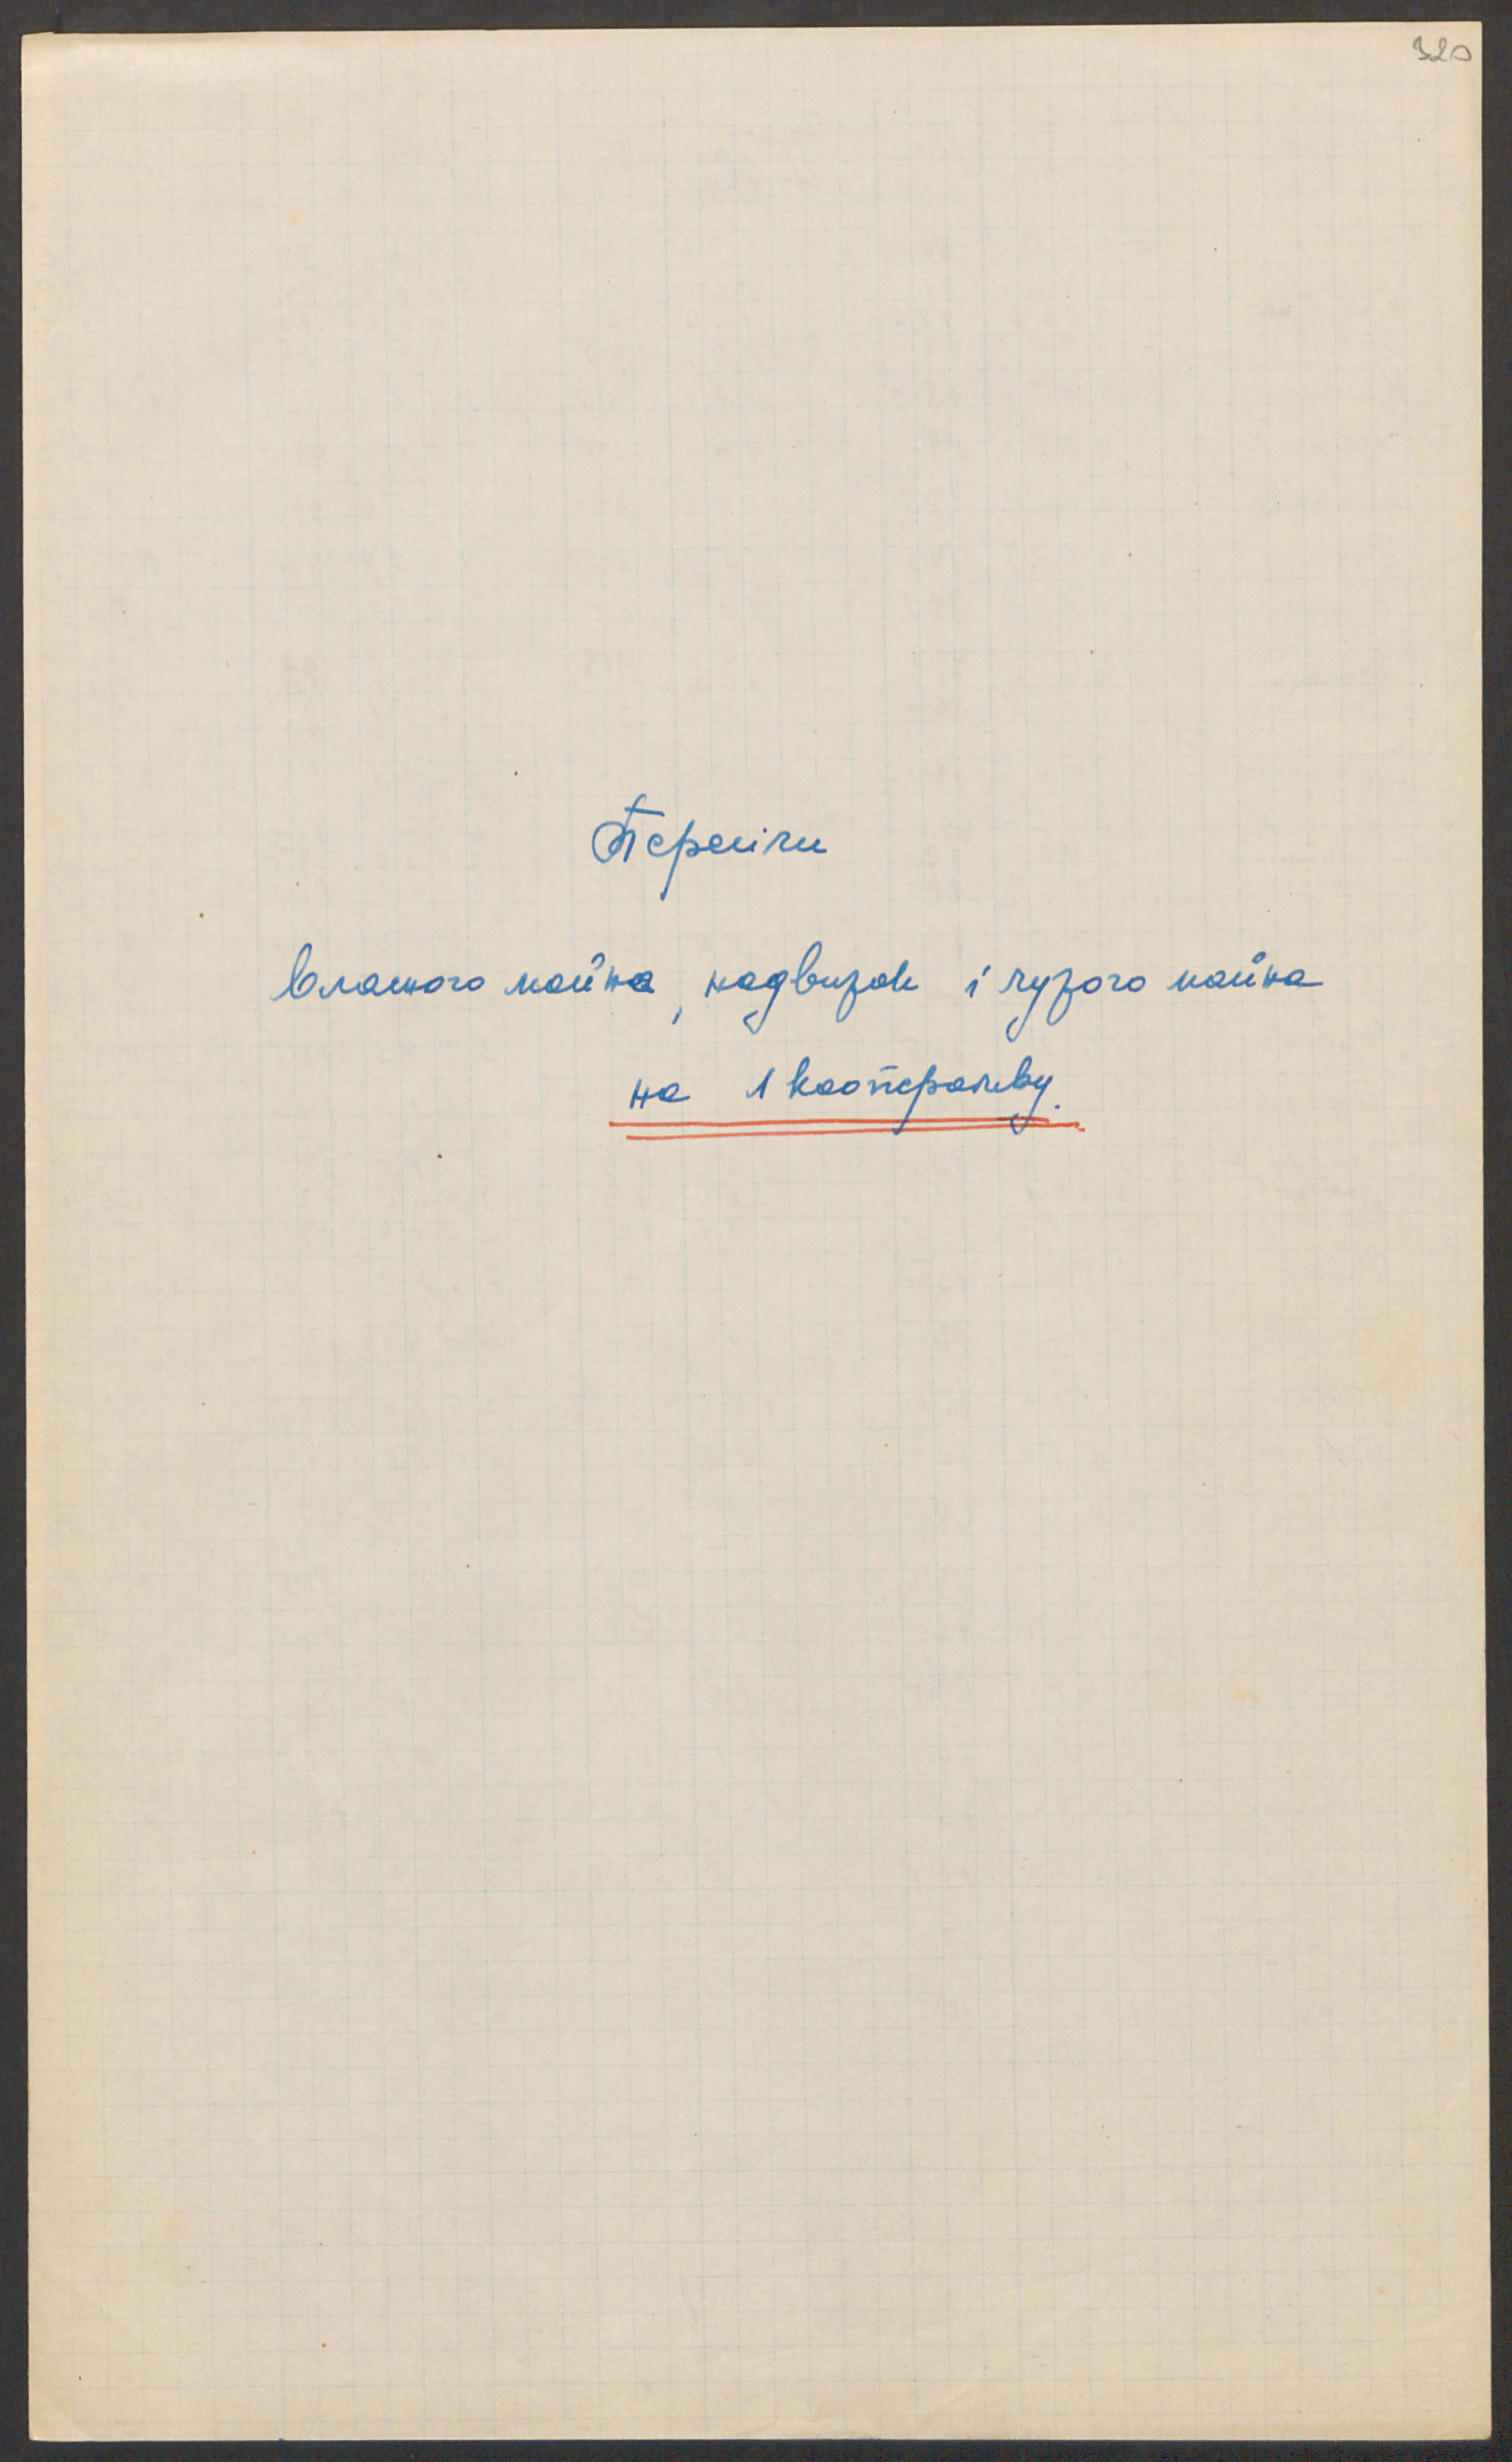 320
Переліки
власного майна, надвижок і чужого майна
на 1 кооперативу.